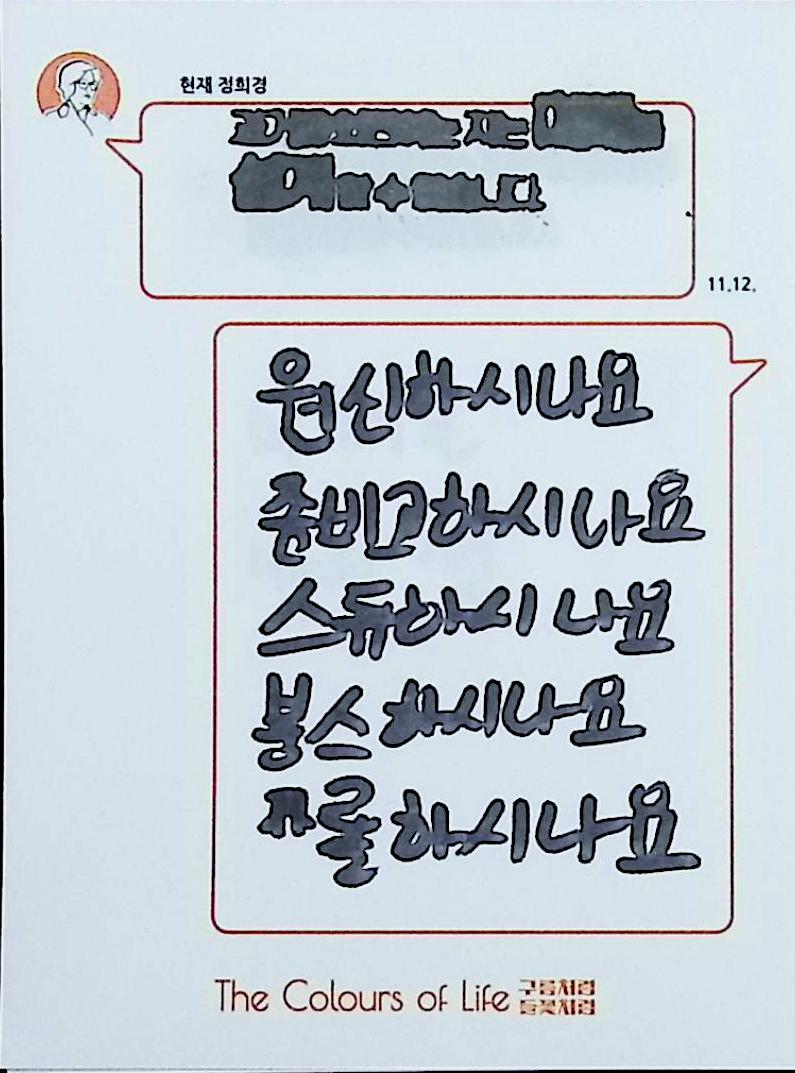 현재 정희경
11.12.
원신하시나요
준비고하시나요
스듀하시나요
붕스하시나요
프롤하시나요
The Colours of Life 구름처럼
들꽃처럼